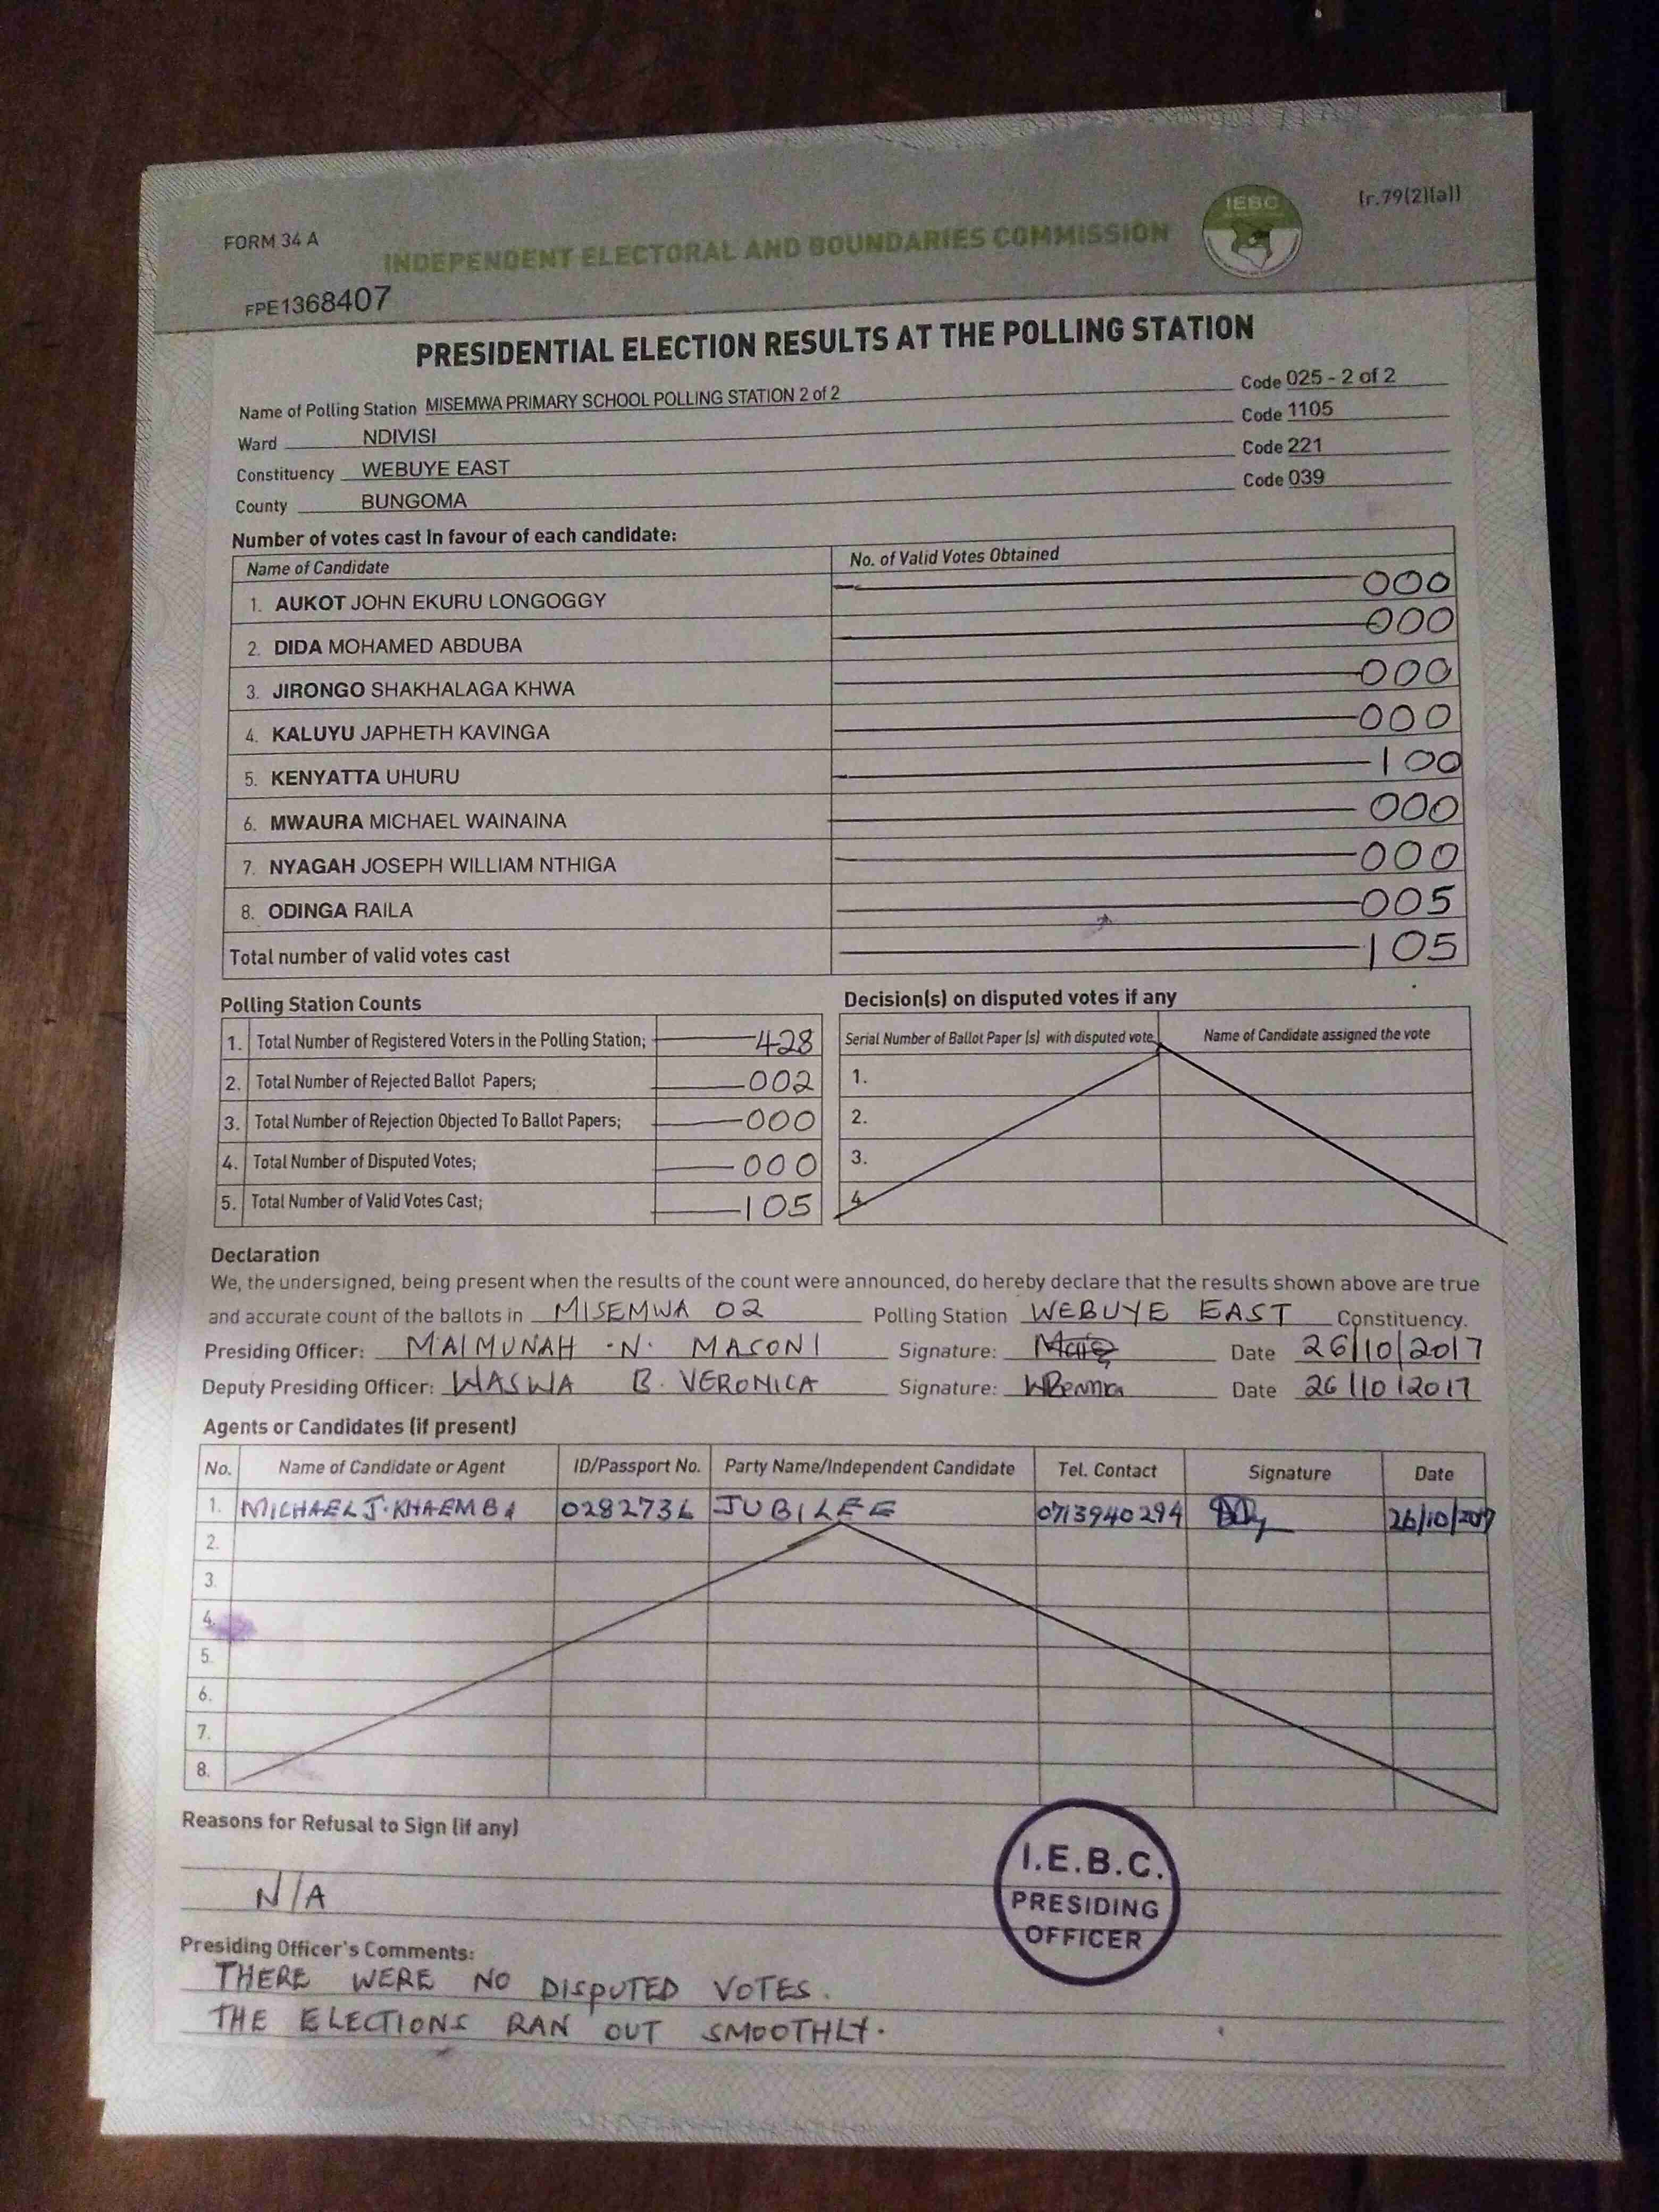 (r.79(2)(a))
IEBC
FORM 34 A
INDEPENDENT ELECTORAL AND BOUNDARIES COMMISSION
FPE1368407
PRESIDENTIAL ELECTION RESULTS AT THE POLLING STATION
Name of Polling Station MISEMWA PRIMARY SCHOOL POLLING STATION 2 of 2 Code 025 - 2 of 2
Ward NDIVISI Code 1105
Constituency WEBUYE EAST Code 221
County BUNGOMA Code 039
Number of votes cast in favour of each candidate:
Name of Candidate No. of Valid Votes Obtained
1. AUKOT JOHN EKURU LONGOGGY 000
2. DIDA MOHAMED ABDUBA 000
3. JIRONGO SHAKHALAGA KHWA 000
4. KALUYU JAPHETH KAVINGA 000
5. KENYATTA UHURU 100
6. MWAURA MICHAEL WAINAINA 000
7. NYAGAH JOSEPH WILLIAM NTHIGA 000
8. ODINGA RAILA 005
Total number of valid votes cast 105
Polling Station Counts
1. Total Number of Registered Voters in the Polling Station; 428
2. Total Number of Rejected Ballot Papers; 002
3. Total Number of Rejection Objected To Ballot Papers; 000
4. Total Number of Disputed Votes; 000
5. Total Number of Valid Votes Cast; 105
Decision(s) on disputed votes if any
Serial Number of Ballot Paper (s) with disputed vote Name of Candidate assigned the vote
1.
2.
3.
4.
Declaration
We, the undersigned, being present when the results of the count were announced, do hereby declare that the results shown above are true
and accurate count of the ballots in MISEMWA 02 Polling Station WEBUYE EAST Constituency.
Presiding Officer: MAIMUNAH .N. MASONI Signature: Date 26/10/2017
Deputy Presiding Officer: WASWA B. VERONICA Signature: Date 26/10/2017
Agents or Candidates (if present)
No. Name of Candidate or Agent ID/Passport No. Party Name/Independent Candidate Tel. Contact Signature Date
1. MICHAEL J. KHAEMBA 0282736 JUBILEE 0713940294 26/10/2017
2.
3.
4.
5.
6.
7.
8.
Reasons for Refusal to Sign (if any)
N/A
I.E.B.C.
PRESIDING
OFFICER
Presiding Officer's Comments:
THERE WERE NO DISPUTED VOTES.
THE ELECTIONS RAN OUT SMOOTHLY.